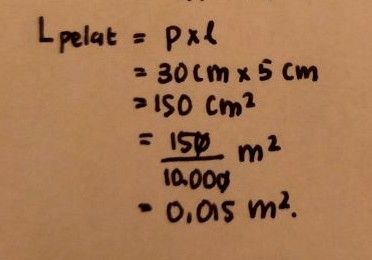 L pelat = p x l
= 30 cm x 5 cm
= 150 cm²
= 150/10.000 m²
= 0,015 m².